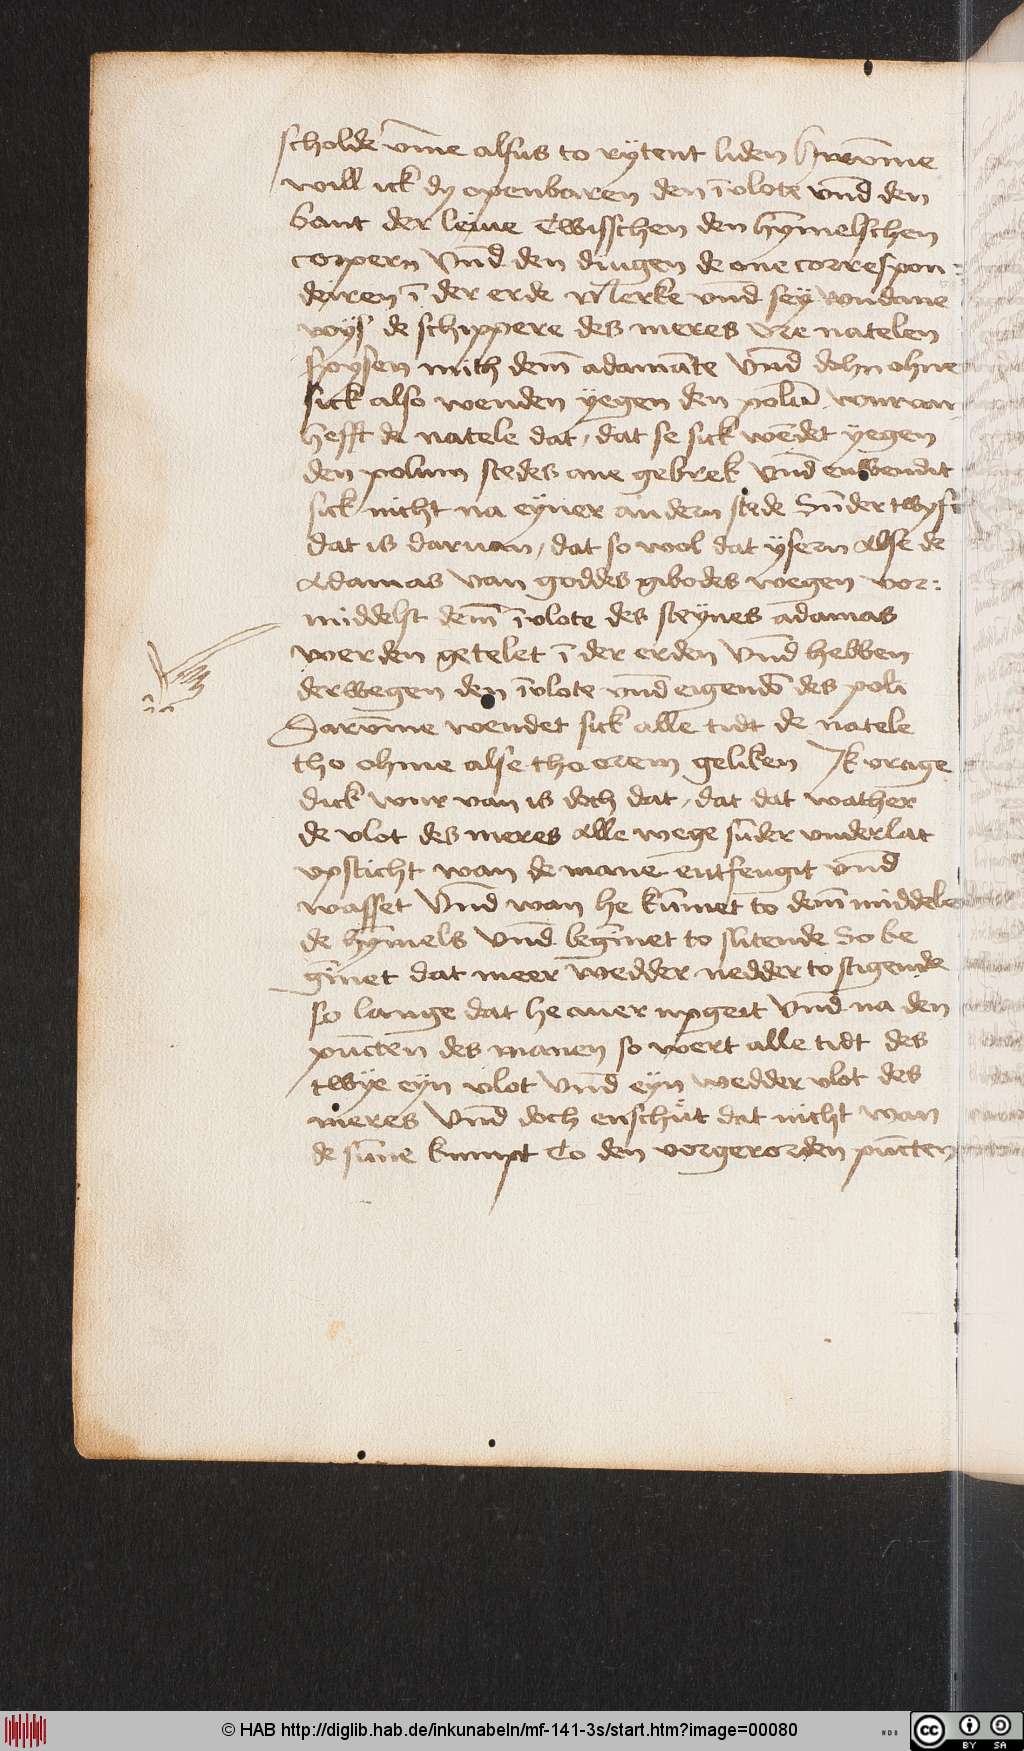 scholde v̄me alsus to rytent liden hirv̄me
will ick dy openbaren den īvlote vn̄d den
bant der leine Twisschen den hȳmelschen
corpern Vnd den dingen de one correspon=
deiren ī der erde Merke vn̄d sey
wys de schippere des meres ere natelen
spysen mith dem̄ adamāte Vnd dohn ohne
sick also wenden yegen den polū wurvan
hefft de natele dat, dat se sick wēdet yegen
den polum stedes ane gebrek Vnd enwendit
sick nicht na eyner andern stede Sūder twyfel
dat is daruan, dat so wol dat ysern Alse de
Adamas van goddes gbodes wegen vor=
middelst dem̄ īvlote des steynes adamas
werden getelet ī der erden Vnd hebben
derwegen den īvlote vn̄d eigendō des poli
Darv̄me wendet sick alle tidt de natele
tho ohme alse tho orem geliken Jk vrage
dick wur van is doch dat, dat dat wather
de vlot des meres Alle wege sūder vnderlat
vpsticht wan de mane entfengit vn̄d
wasset Vnd wan he kūmet to dem̄ middele
de hȳmels Vnd begīnet to slitende So be
gīnet dat meer wedder nedder to stigende
so lange dat he auer upgeit Vnd na den
pūcten des manen so wert alle tidt des
twye eyn vlot Vnd eyn wedder vlot des
meres Vnd doch enschut dat nicht wan
de sūne kumpt To den vorgerorden pūcten
© HAB http://diglib.hab.de/inkunabeln/mf-141-3s/start.htm?image=00080
WDB
cc BY SA